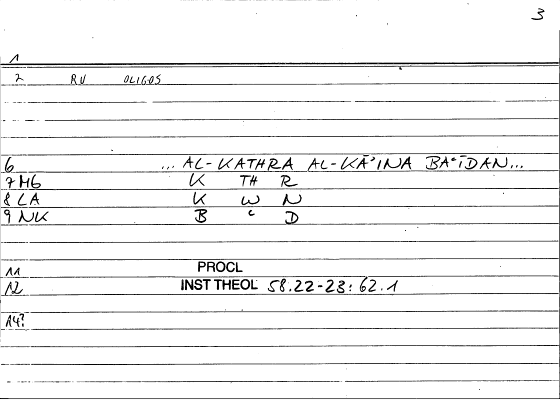 3
1
2 RU OLIGOS
6 ... AL-KATHRA AL-KĀʾINA BAʿĪDAN...
7 MG K TH R
8 LA K W N
9 NK B ʿ D
11 PROCL
12 INST THEOL 58.22-23: 62.1
14?